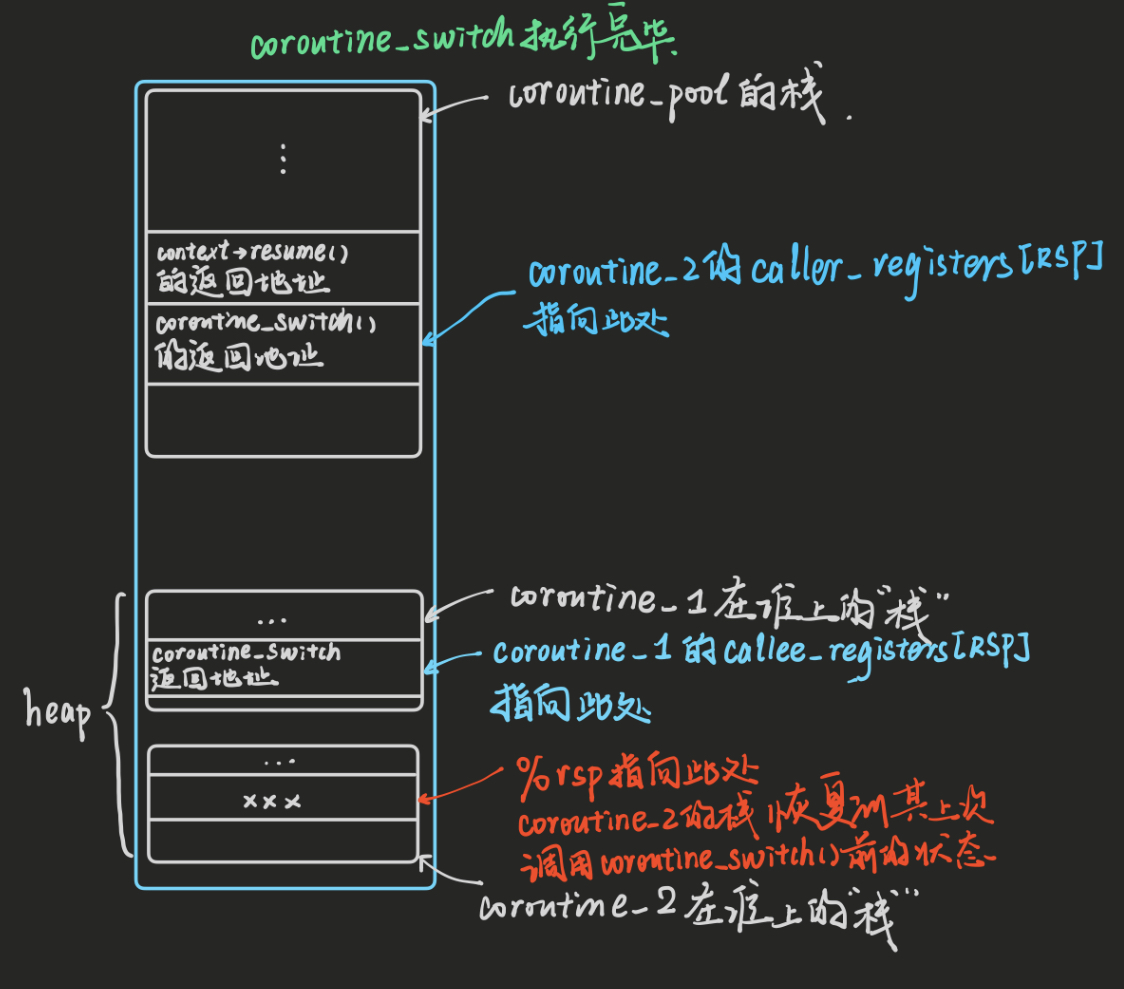 coroutine_switch执行完毕
coroutine_pool的栈.
context→resume()
的返回地址
coroutine_2的caller_registers[RSP]
指向此处
coroutine_switch()
的返回地址
coroutine_1在堆上的"栈"
...
coroutine_switch
返回地址
coroutine_1的callee_registers[RSP]
指向此处
heap
...
xxx
%rsp指向此处
coroutine_2的栈恢复到其上次
调用coroutine_switch()前的状态
coroutine_2在堆上的"栈"